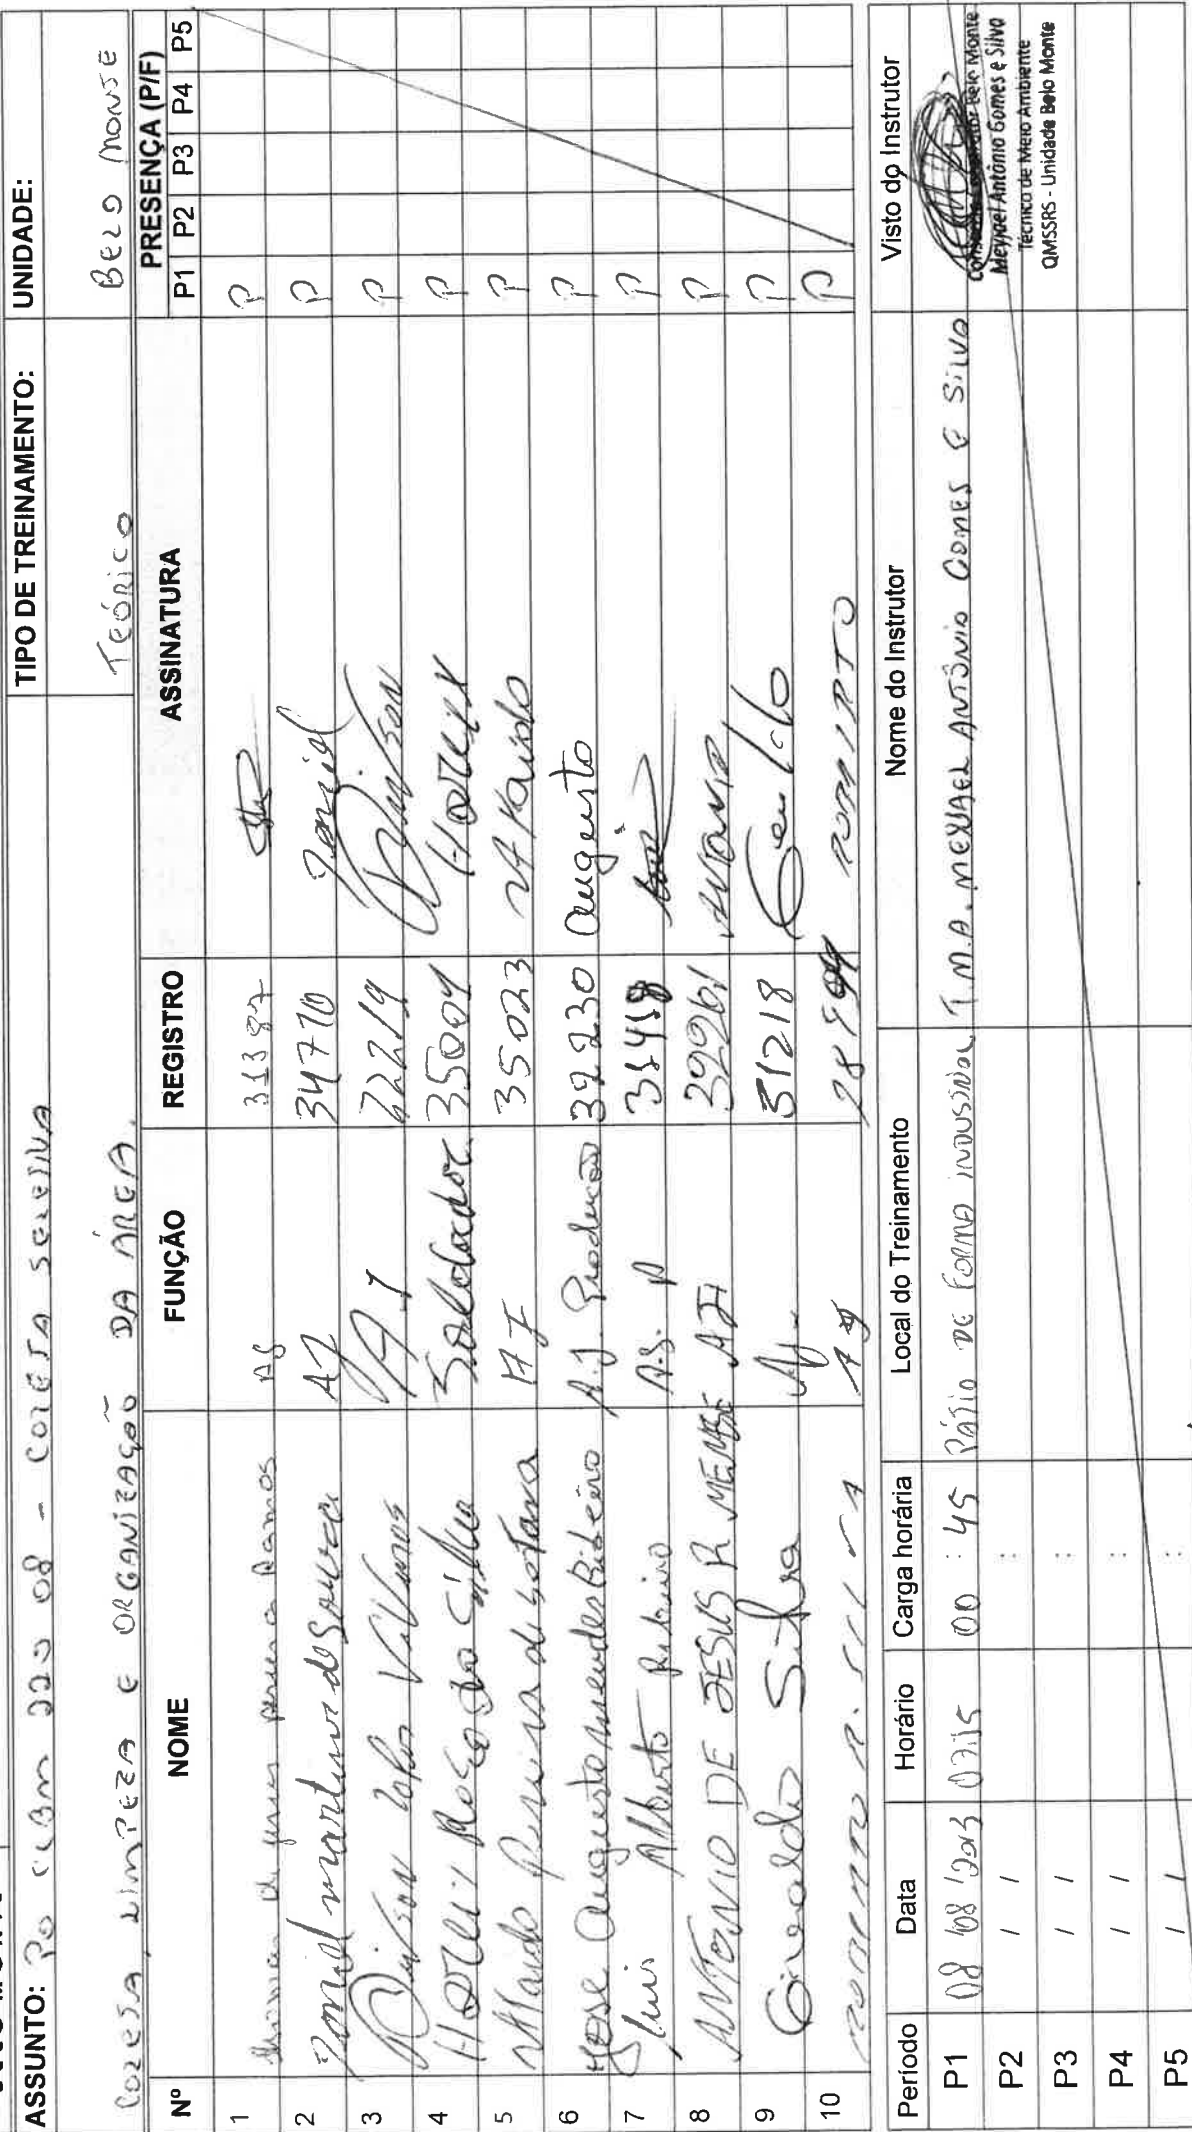 ASSUNTO: PO CCBM 220 08 - COLETA SELETIVA
COLETA, LIMPEZA E ORGANIZAÇÃO DA ÁREA.
TIPO DE TREINAMENTO:
TEÓRICO
UNIDADE:
BELO MONTE
Nº NOME FUNÇÃO REGISTRO ASSINATURA PRESENÇA (P/F)
P1 P2 P3 P4 P5
1 de jesus pereira Ramos AS 31387 P
2 Daniel martins de Souza AJ 34770 Daniel P
3 AJ 22219 P
4 Soldador 35009 P
5 Pereira de AJ 35023 P
6 José Augusto mendes Ribeiro A.J. Produção 32230 Augusto P
7 Luis Alberto Ribeiro A.S. P 31458 Luis P
8 ANTONIO DE JESUS R MENDE AJ 39961 ANTONIO P
9 Genaldo Silva AJ 51218 Genaldo P
10 AJ P
Período Data Horário Carga horária Local do Treinamento Nome do Instrutor Visto do Instrutor
P1 08/08/2013 07:15 00:45 PÁTIO DE FORMA INDUSTRIAL T.M.A. MEYXAEL ANTÔNIO GOMES E SILVA
Consórcio Construtor Belo Monte
Meyxael Antônio Gomes e Silva
Técnico de Meio Ambiente
QMSSRS - Unidade Belo Monte
P2 / / :
P3 / / :
P4 / / :
P5 / / :